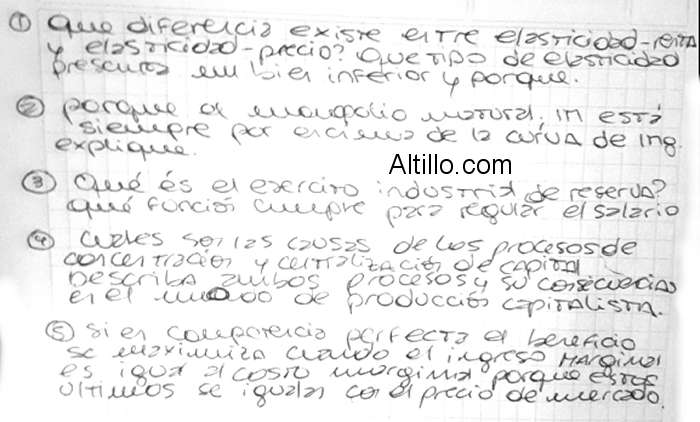 ① Que diferencia existe entre elasticidad-renta
y elasticidad-precio? Que tipo de elasticidad
presenta un bien inferior y porque.
② porque el monopolio natural, in está
siempre por encima de la curva de ing.
explique.
Altillo.com
③ Qué és el exercito industrial de reserva?
qué función cumple para regular el salario
④ cuales son las causas de los procesos de
concentración y centralización de capital
Describa ambos procesos y su consecuencias
en el modo de producción capitalista.
⑤ Si en competencia perfecta el beneficio
se maximiza cuando el ingreso marginal
es igual al costo marginal porque estos
ultimos se igualan con el precio de mercado.